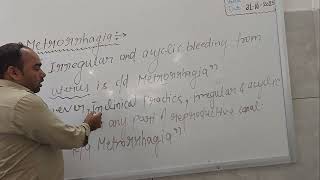 Metrorrhagia:-
Date: 21-10-2025
Irregular and acyclic bleeding from
uterus is c/d Metrorrhagia"
ever, In clinical practice, irregular & acyclic
any part of reproductive canal
Metrorrhagia"